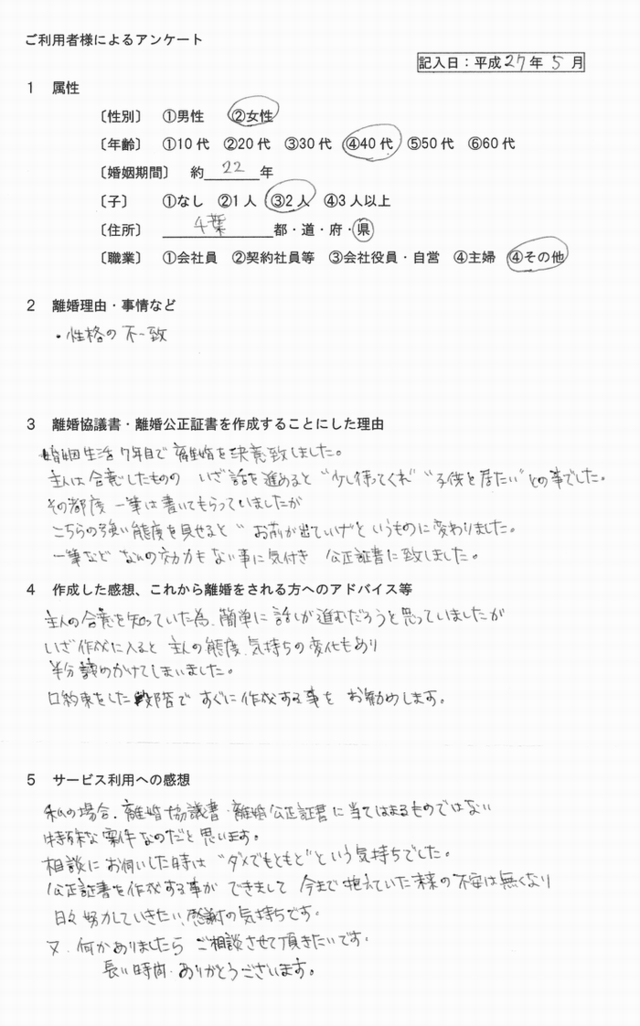 ご利用者様によるアンケート
記入日：平成27年5月
1 属性
〔性別〕 ①男性 ②女性
〔年齢〕 ①10代 ②20代 ③30代 ④40代 ⑤50代 ⑥60代
〔婚姻期間〕 約22年
〔子〕 ①なし ②1人 ③2人 ④3人以上
〔住所〕 千葉 都・道・府・県
〔職業〕 ①会社員 ②契約社員等 ③会社役員・自営 ④主婦 ④その他
2 離婚理由・事情など
・性格の不一致
3 離婚協議書・離婚公正証書を作成することにした理由
婚姻生活7年目で離婚を決意致しました。
主人は合意したものの いざ話を進めると"少し待ってくれ""子供と居たい"との事でした。
その都度一筆は書いてもらっていましたが
こちらの強い態度を見せると"お前が出ていけ"というものに変わりました。
一筆など なんの効力もない事に気付き 公正証書に致しました。
4 作成した感想、これから離婚をされる方へのアドバイス等
主人の合意を知っていた為、簡単に話しが進むだろうと思っていましたが
いざ作成に入ると 主人の態度、気持ちの変化もあり
半分諦めかけてしまいました。
口約束をした段階で すぐに作成する事を お勧めします。
5 サービス利用への感想
私の場合、離婚協議書・離婚公正証書に当てはまるものではない
特殊な案件なのだと思います。
相談にお伺いした時は"ダメでもともと"という気持ちでした。
公正証書を作成する事ができまして 今まで抱えていた未来の不安は無くなり
日々努力していきたい、感謝の気持ちです。
又、何かありましたら ご相談させて頂きたいです。
長い時間、ありがとうございます。